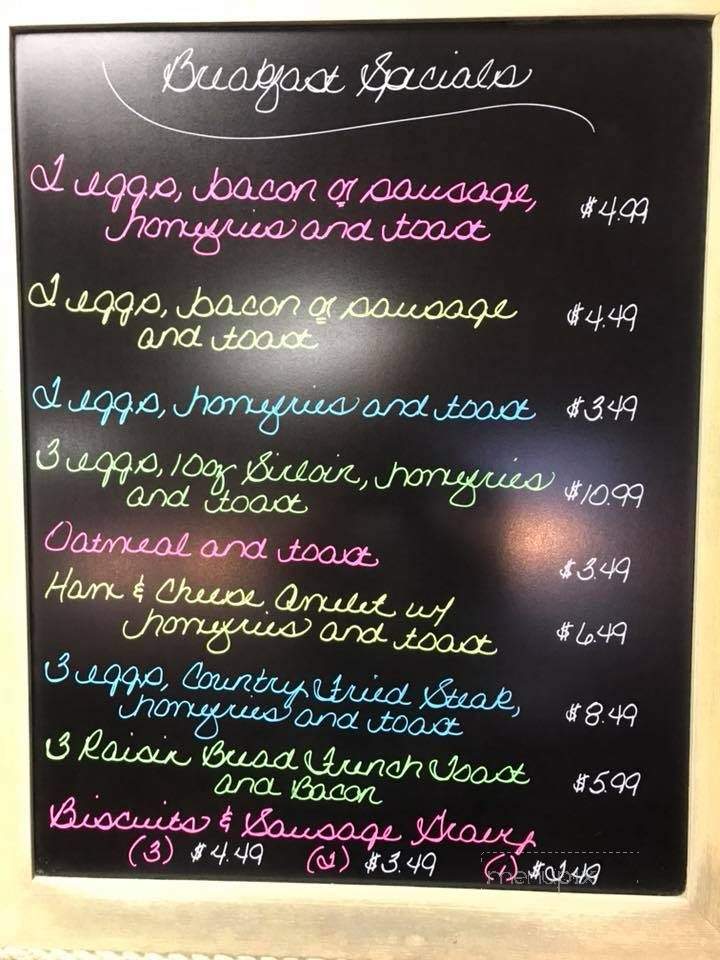 Breakfast Specials
2 eggs, bacon or sausage,
homefries and toast $4.99
2 eggs, bacon or sausage
and toast $4.49
2 eggs, homefries and toast $3.49
3 eggs, 10oz Sirloin, homefries
and toast $10.99
Oatmeal and toast $3.49
Ham & Cheese Omelet w/
homefries and toast $6.49
3 eggs, Country Fried Steak,
homefries and toast $8.49
3 Raisin Bread French Toast
and Bacon $5.99
Biscuits & Sausage Gravy
(3) $4.49 (2) $3.49 (1) $2.49
menupix